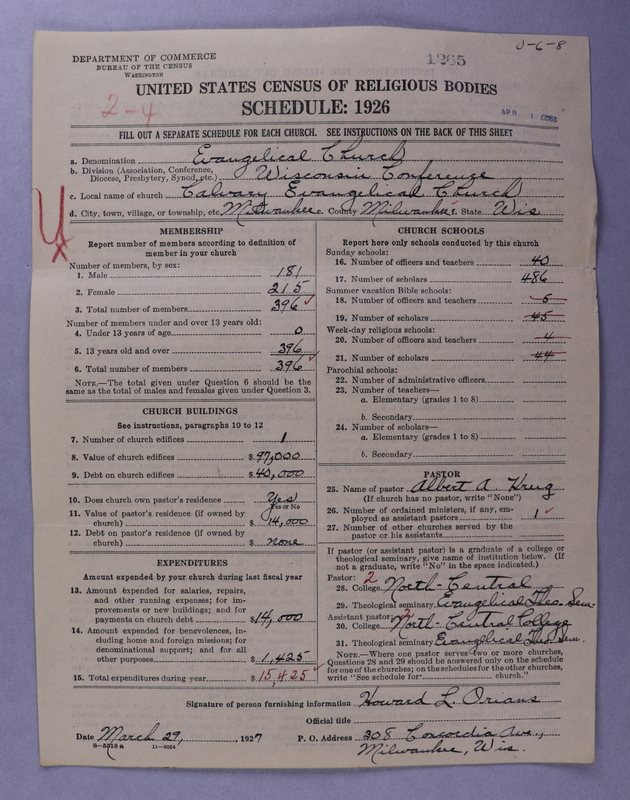 U-6-8
DEPARTMENT OF COMMERCE
BUREAU OF THE CENSUS
WASHINGTON
1265
UNITED STATES CENSUS OF RELIGIOUS BODIES
2-4
SCHEDULE: 1926
APR
FILL OUT A SEPARATE SCHEDULE FOR EACH CHURCH. SEE INSTRUCTIONS ON THE BACK OF THIS SHEET
a. Denomination Evangelical Church
b. Division (Association, Conference, Diocese, Presbytery, Synod, etc.) Wisconsin Conference
c. Local name of church Calvary Evangelical Church
d. City, town, village, or township, etc. Milwaukee e. County Milwaukee f. State Wis
MEMBERSHIP
Report number of members according to definition of
member in your church
Number of members, by sex:
1. Male 181
2. Female 215
3. Total number of members 396
Number of members under and over 13 years old:
4. Under 13 years of age 0
5. 13 years old and over 396
6. Total number of members 396
NOTE.—The total given under Question 6 should be the
same as the total of males and females given under Question 3.
CHURCH BUILDINGS
See instructions, paragraphs 10 to 12
7. Number of church edifices 1
8. Value of church edifices $97,000
9. Debt on church edifices $40,000
10. Does church own pastor's residence Yes
Yes or No
11. Value of pastor's residence (if owned by
church) $14,000
12. Debt on pastor's residence (if owned by
church) $none
EXPENDITURES
Amount expended by your church during last fiscal year
13. Amount expended for salaries, repairs,
and other running expenses; for im-
provements or new buildings; and for
payments on church debt $14,000
14. Amount expended for benevolences, in-
cluding home and foreign missions; for
denominational support; and for all
other purposes $1,425
15. Total expenditures during year $15,425
CHURCH SCHOOLS
Report here only schools conducted by this church
Sunday schools:
16. Number of officers and teachers 40
17. Number of scholars 486
Summer vacation Bible schools:
18. Number of officers and teachers 5
19. Number of scholars 45
Week-day religious schools:
20. Number of officers and teachers 4
21. Number of scholars 44
Parochial schools:
22. Number of administrative officers
23. Number of teachers—
a. Elementary (grades 1 to 8)
b. Secondary
24. Number of scholars—
a. Elementary (grades 1 to 8)
b. Secondary
PASTOR
25. Name of pastor Albert A. Krug
(If church has no pastor, write "None")
26. Number of ordained ministers, if any, em-
ployed as assistant pastors 1
27. Number of other churches served by the
pastor or his assistants
If pastor (or assistant pastor) is a graduate of a college or
theological seminary, give name of institution below. (If
not a graduate, write "No" in the space indicated.)
Pastor: 2
28. College North-Central
29. Theological seminary Evangelical Theo. Sem.
Assistant pastor: 2
30. College North-Central College
31. Theological seminary Evangelical Theo. Sem.
NOTE.—Where one pastor serves two or more churches,
Questions 28 and 29 should be answered only on the schedule
for one of the churches; on the schedules for the other churches,
write "See schedule for church."
Signature of person furnishing information Howard L. Orians
Official title
Date March 29, 1927 P. O. Address 308 Concordia Ave.,
8-5518a 11-8034 Milwaukee, Wis.